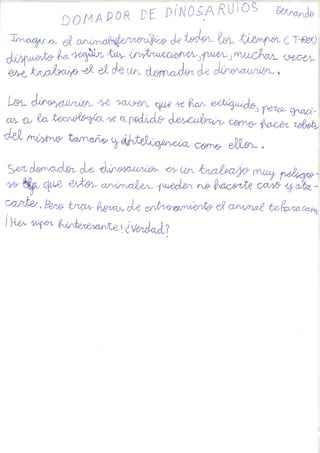 DOMADOR DE DINOSARUIOS Bernando
Imagina el animal terrorífico de todos los tiempos (T-REX)
dispuesto ha seguir tus instrucciones, pues, muchas veces
ese trabajo el el de un domador de dinosaurios.
Los dinosaurios se saven que se han extiguido, pero graci-
as a la tecnología se a podido descubrir como hacer robots
del mismo tamaño y inteligencia como ellos.
Ser domador de dinosaurios es un trabajo muy peligro-
so que estos animales pueden no hacerte caso y ata-
carte. Pero tras horas de entrenamiento el animal te hara caso
¡Hes super hinteresante! ¿Verdad?